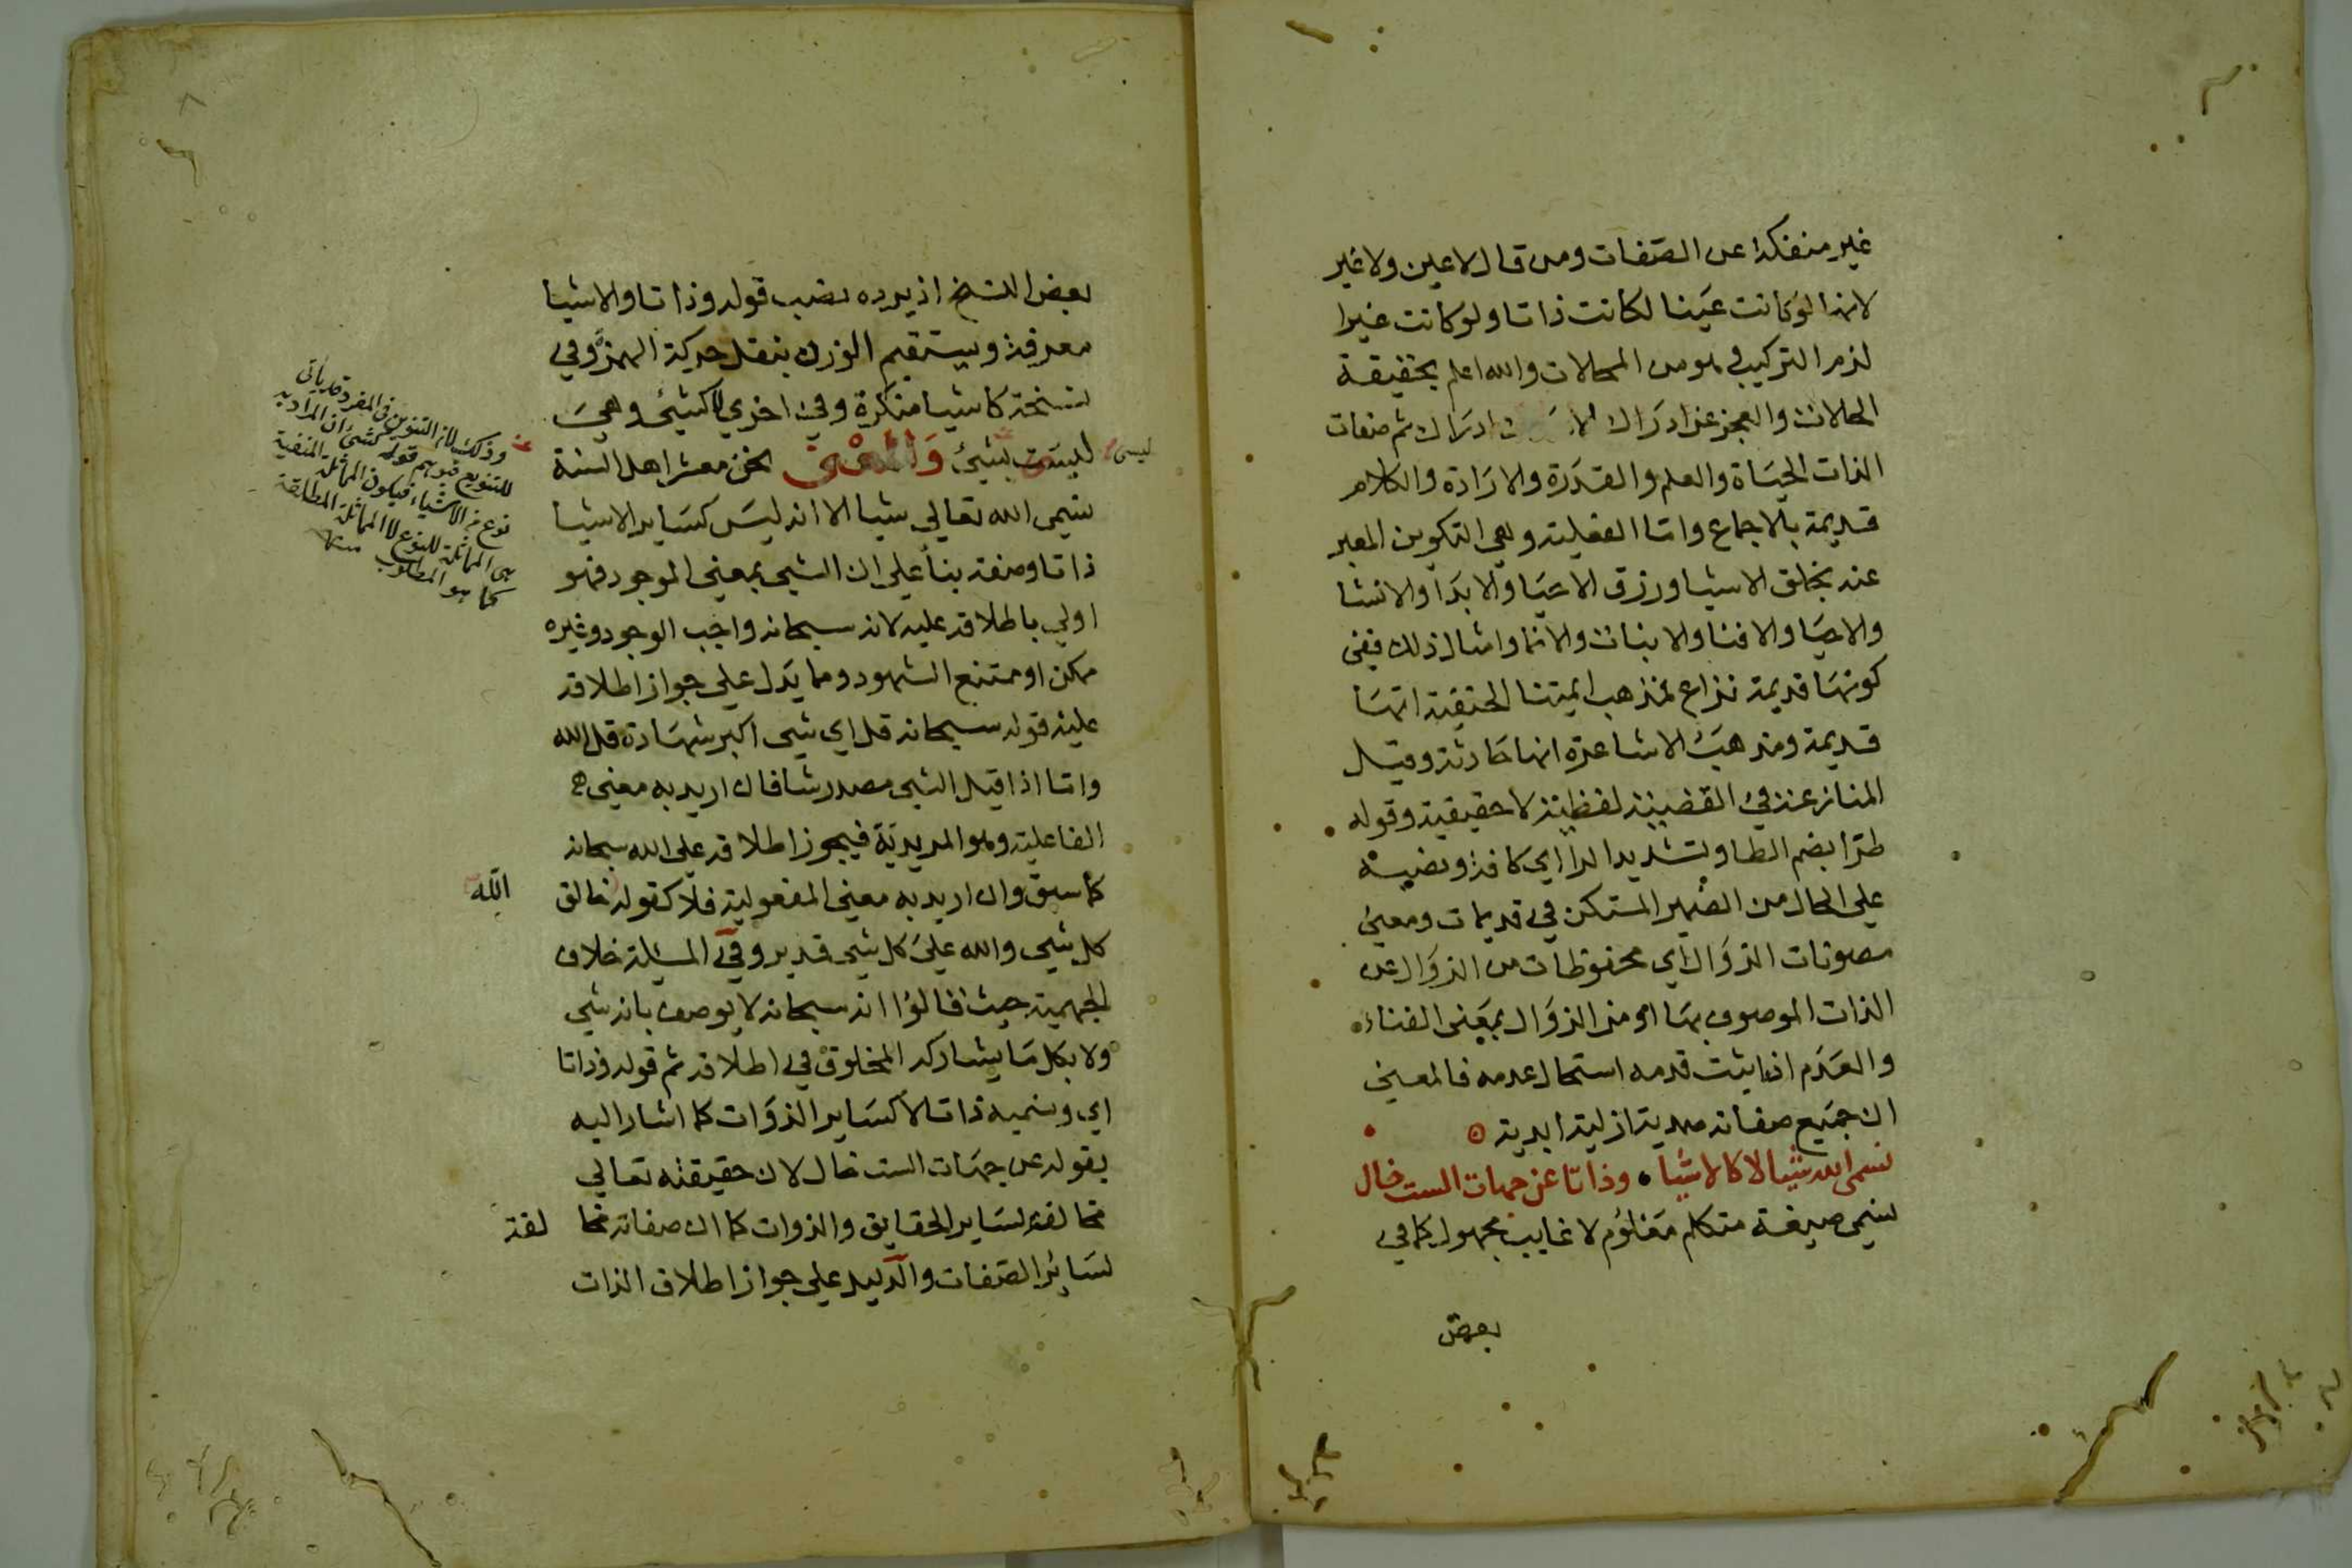 غير منفكة عن الصفات ومن قال لا عين ولا غير
لانها لوكانت عينا لكانت ذاتا ولو كانت غيرا
لزم التركيب وهو من المحالات والله اعلم بحقيقة
الحالات والعجز عن ادراك ادراك ثم صفات
الذات الحياة والعلم والقدرة والارادة والكلام
قديمة بالاجماع واما الفعلية وهي التكوين المعبر
عنه بخلق الاشيا ورزق الاحيا والابدا والانشا
والاحيا والافنا والانبات والانما وامثال ذلك ففي
كونها قديمة نزاع فمذهب ايمتنا الحنفية انها
قديمة ومذهب الاشاعرة انها حادثة وقيل
المنازعة في القضية لفظية لا حقيقية وقوله
طرا بضم الطا وتشديد الرا اي كافة ونصبه
على الحال من الضمير المستكن في قديمات ومعنى
مصونات الزوال اي محفوظات من الزوال عن
الذات الموصوف بها او من الزوال بمعنى الفناء
والعدم اذ ما يثبت قدمه استحال عدمه فالمعنى
ان جميع صفاته صمدية ازلية ابدية
نسمي الله شيا لا كالاشيا • وذاتا عن جهات الست خال
نسمي صيغة متكلم معلوم لا غايب مجهول كما في
بعض
بعض النسخ اذ يرده نصب قوله وذاتا والاشيا
معرفة ويستقيم الوزن بنقل حركة الهمز وفي
نسخة كاشيا منكرة وفي اخري لا كشئ وهي
ليست بشئ والمعنى نحن معشر اهل السنة
ليس
نسمي الله تعالي شيا الا انه ليس كساير الاشيا
ذاتا وصفة بنأ علي ان الشي بمعني الموجود فهو
اولي باطلاقه عليه لانه سبحانه واجب الوجود وغيره
ممكن او ممتنع الشهود ومما يدل علي جواز اطلاقه
عليه قوله سبحانه قل اي شي اكبر شهادة قل الله
واما اذا قيل الشي مصدر شا فان اريد به معني
الفاعلية وهو المريدية فيجوز اطلاقه علي الله سبحانه
كما سبق وان اريد به معني المفعولية فلا كقوله خالق
الله
كل شي والله علي كل شي قدير وفي المسيلة خلاف
الجهمية حيث قالوا انه سبحانه لا يوصف بانه شي
ولا بكل ما يشاركه المخلوق في اطلاقه ثم قوله وذاتا
اي ونسميه ذاتا لا كساير الذوات كما اشار اليه
بقوله عن جهات الست خال لان حقيقته تعالي
مخالفة لساير الحقايق والذوات كما ان صفاته مخا لفة
لسائر الصفات والدليل علي جواز اطلاق الذات
وذلك لان التنوين في المفرد قد ياتي
للتنويع فيوهم قوله كشئ ان المراد به
نوع من الاشياء فيكون المماثلة المنفية
هي المماثلة للنوع لا المماثلة المطلقة
كما هو المطلوب